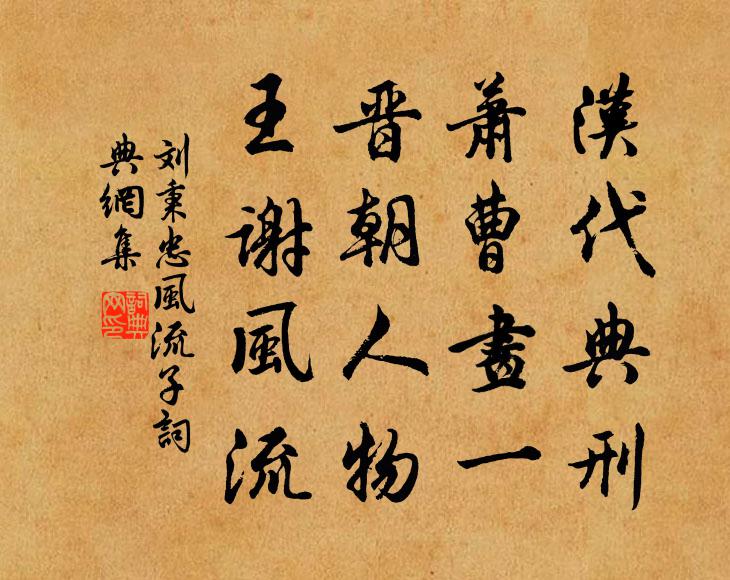 漢代典刑
蕭曹畫一
晋朝人物
王謝風流
刘秉忠風流子詞
典網集
詞典网印